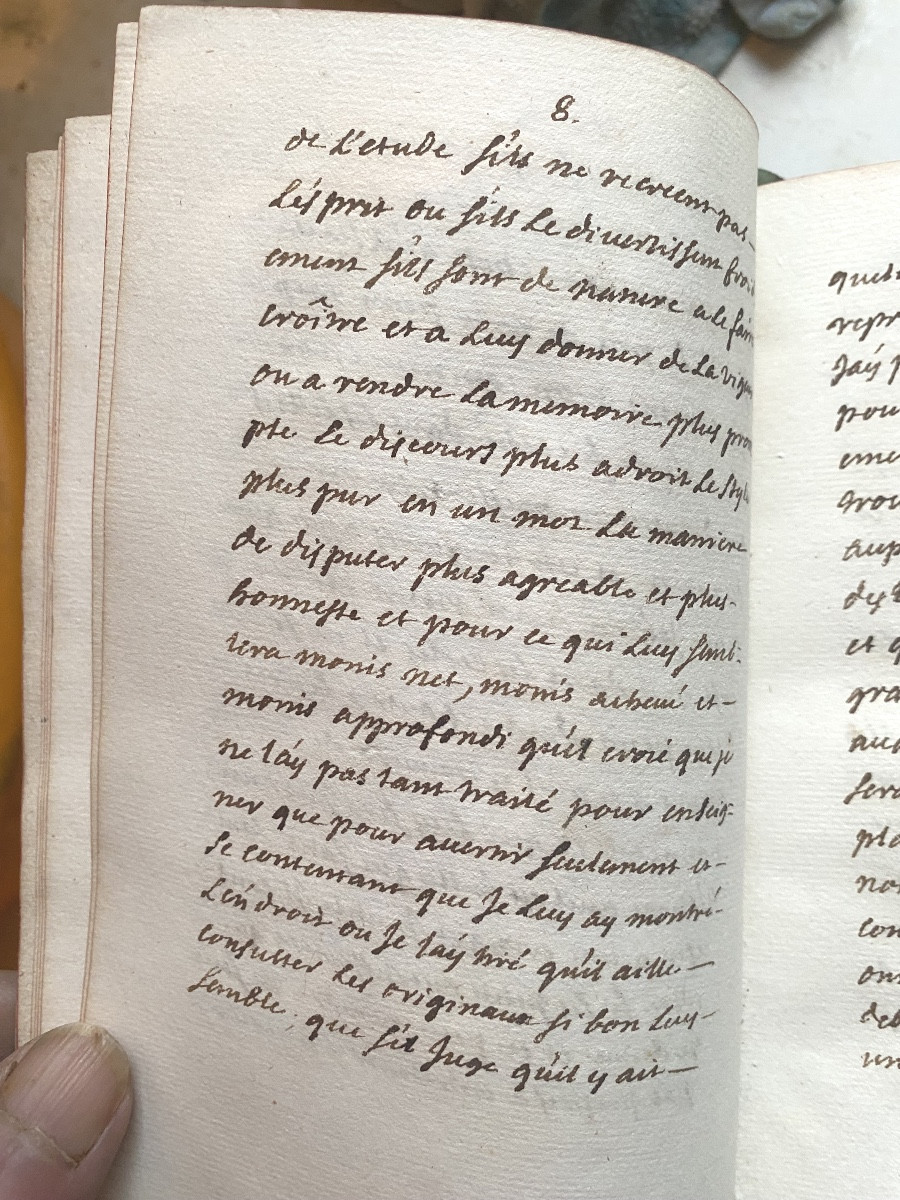 8.
de L'etude s'ils ne recreent pas —
L'ésprit ou s'ils Le divertissent froid
ement s'ils sont de nature a le faire
croître et a Luy donner de La vigu
ou a rendre La memoire plus prom
pte Le discours plus adroit Le Style
plus pur en un mot La maniere
de disputer plus agreable et plus-
honneste et pour ce qui Luy semb-
lera monis net, monis achevé et —
monis approfondi qu'il croié que je
ne l'aÿ pas tant traité pour enseig-
ner que pour avertir seulement et-
Se contentant que Je Luy ay montré-
L'eńdroit ou Je l'aÿ tiré qu'il aille —
consulter Les originaux si bon Luy-
Semble, que s'il Juge qu'il y ait —
quel
repr
Jaÿ p
pou
eme
trou
aup
de
et q
gra
auc
sera
pla
no
con
on
deb
un